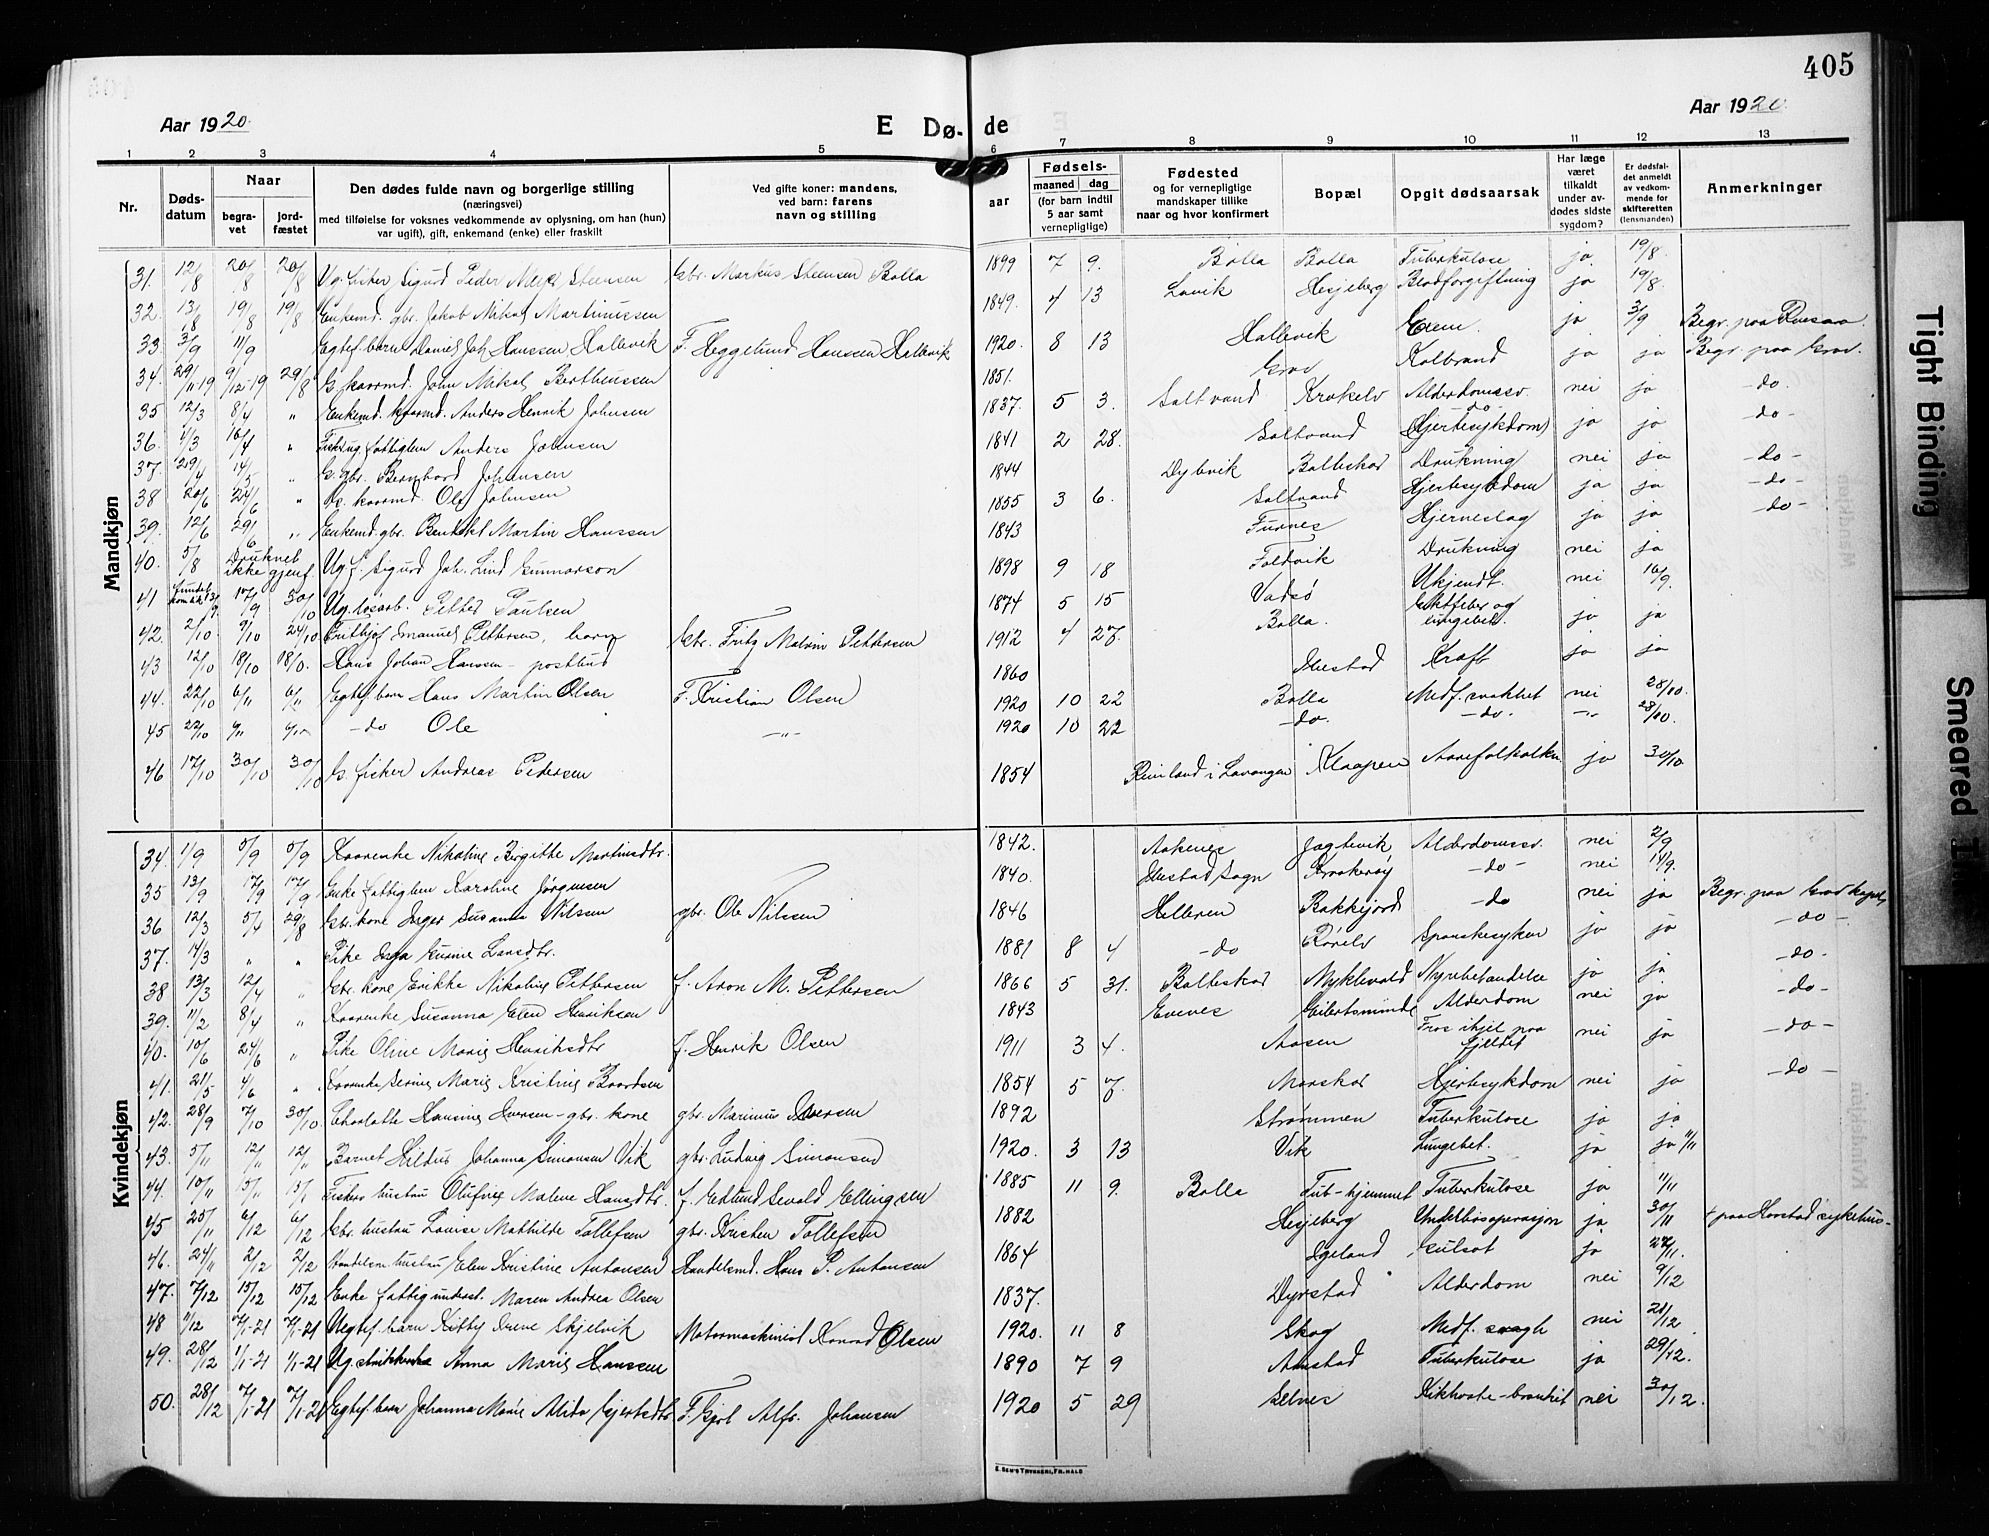 405
Aar 1920.
E Dø- de
Aar 1920.
1 2 3 4 5 6 7 8 9 10 11 12 13
Nr.
Døds-
datum
Naar
begra-
vet
jord-
fæstet
Den dødes fulde navn og borgerlige stilling
(næringsvei)
med tilføielse for voksnes vedkommende av oplysning, om han (hun)
var ugift), gift, enkemand (enke) eller fraskilt
Ved gifte koner: mandens,
ved barn: farens
navn og stilling
Fødsels-
aar
maaned dag
(for barn indtil
5 aar samt
vernepligtige)
Fødested
og for vernepligtige
mandskaper tillike
naar og hvor konfirmert
Bopæl
Opgit dødsaarsak
Har læge
været
tilkaldt
under av-
dødes sidste
sygdom?
Er dødsfal-
det anmeldt
av vedkom-
mende for
skifteretten
(lensmanden)
Anmerkninger
Mandkjøn
31. 12/8 20/8 20/8 Ug. fisker Sigurd Peder Meyer Steensen Gbr. Markus Steensen Balla 1899 7 9. Balla Balla Tuberkulose ja 19/8
32. 13/8 19/8 19/8 Enkemd. gbr. Jakob Nikolai Martinussen 1849. 4 13 Lavik Hesjeberg Blodforgiftning ja 19/8
33. 3/9 11/9 Egtef. barn Daniel Joh. Hanssen Hallevik F. Heggelund Hansen Hallevik 1920. 8 13 Hallevik ja 3/9 Begr. paa
34. 29/11-19 9/12-19 29/8 G. kaarmd. John Mikal Bertheussen 1851. Grov Kolbrand ja ja Begr. paa Grov.
35 12/3 8/4 " Enkemd. kaarmd. Anders Henrik Johnsen 1837. 5 3. Saltvand Krokelv Alderdomssv. nei ja -do.
36. 4/3 16/4 " fattiglem Anders Johnsen 1841 2 28. Saltvand -do- (Hjertesykdom) ja ja -do-
37. 29/4 14/5 " G. gbr. Bernhard Johansen 1844 Dybvik Balteskar Drukning nei ja -do-
38 20/6 24/6 " G. kaarmd. Ole Johnsen 1855 3 6. Saltvand Hjertesykdom ja ja -do-
39. 12/6 29/6 " Enkemd. gbr. Benedikt Martin Hanssen 1843 Furnes Hjerneslag ja ja -do-
40. 5/8 Druknet ikke gjenf. Ug. f. Sigurd Joh. Lind Gunnarson 1898 9 18 Foldvik Drukning nei ja
41 Fundet 13/9 17/9 30/10 Ug. løsarb. Petter Paulsen 1874 5 15 Vadsø Ukjendt. nei 16/9.
42. 2/10 9/10 24/10 Fritjof Emanuel Pettersen, barn Gbr. Fritz Malvin Pettersen 1912 4 27. Balla. og lungebet. ja ja
43 12/10 18/10 18/10. Hans Johan Hanssen - postbud 1860 Ibestad Kræft ja ja
44. 22/10 6/11 6/11 Egtef. barn Hans Martin Olsen F. Kristian Olsen 1920 10 22 Balla Medf. svakhet nei 28/10.
45 22/10 6/11 6/11 -do Ole -"- 1920 10 22 -do. -do- -"- 28/10.
46 17/10 30/10 30/10 G. fisker Andreas Pedersen 1854 i Lavangen Klaapen Aareforkalkn ja 30/10
Kvindekjøn
34. 1/9 5/9 5/9 Kaarenke Nikoline Birgitte Martinsdtr. 1842. Aakenes Jagtevik Alderdomssv. nei 2/9
35 13/9 17/9 17/9 Enke fattiglem Karoline Jørgensen 1840. Ibestad sogn Krokerøy -do- nei 14/9.
36 12/3 5/4 29/8 Gbr. kone Inger Susanna Nilsen gbr. Ole Nilssen 1846 Helleren Bakkejord -do nei ja Begr. paa Grov kapel
37. 14/3 " " Pike Inga Gurine Larsdtr. 1881 8 4 -do Rørelv Spanskesyken ja ja -do-
38 13/3 12/4 " Gbr. kone Erikke Nikoline Pettersen f. Aron M. Pettersen 1866 5 31. Balteskar Myklevold Nyrebetændelse ja ja -do-
39. 11/2 8/4 " Kaarenke Susanna Elen Henriksen 1843 Evenes Alderdom nei ja -do-
40. 10/6 24/6 " Pike Oline Marie Henriksdtr f. Henrik Olsen 1911 3 4. Aasen Fros ihjel paa fjeldet nei ja -do-
41. 21/5 4/6 " Kaarenke Serine Marie Kristine Baardsen 1854 5 7. Maaskar Hjertesykdom nei ja -do-
42. 28/9 7/10 30/10 Charlotte Hansine Iversen - gbr. kone gbr. Marinius Iversen 1892 Strømmen Tuberkulose ja ja
43. 5/11 12/11 12/11 Barnet Hildur Johanna Simonsen Vik gbr. Ludvig Simonsen 1920. 3 13 Vik Lungebet. ja ja 11/11
44. 10/11 15/11 15/11 Fiskers hustru Olufine Malene Hansdtr. f. Edlund Sevald Ellingsen 1885 11 9. Balla Tub-hjemmet Tuberkulose ja 11/11
45 25/11 6/12 6/12 Gbr. hustru Lovise Mathilde Tollefsen gbr. Kristen Tollefsen 1882 Hesjeberg Underlivsoperasjon ja 30/11 + paa Harstad sykehus-
46. 24/11 2/12 2/12 Handelsm. hustru Elen Kristine Antonsen Handelsmd. Hans P. Antonsen 1864 Igeland Gulsot ja 27/11.
47. 7/12 15/12 15/12 Enke fattigunderst. Maren Andrea Olsen 1837. Dyrstad Alderdom nei 9/12
48 9/12 7/1-21 7/1-21 Uegtef. barn Kitty Irene Skjelvik Motormaskinist Konrad Olsen 1920. 11 8 Skog Medf. nei 21/12
49. 28/12 1/1-21 1/1-21 Ug. Anna Marie Hanssen 1890 7 9 Aanstad Tuberkulose ja 29/12.
50. 28/12 7/1-21 7/1-21 Egtef. barn Johanna Marie Alida Gjertsdtr F. Gjert Alfr. Johansen 1920 5 29 Selnes Kikhoste-bronkit nei 30/12.
E. SEM'S TRYKKERI, FR.HALD
Tight Binding
Smeared I